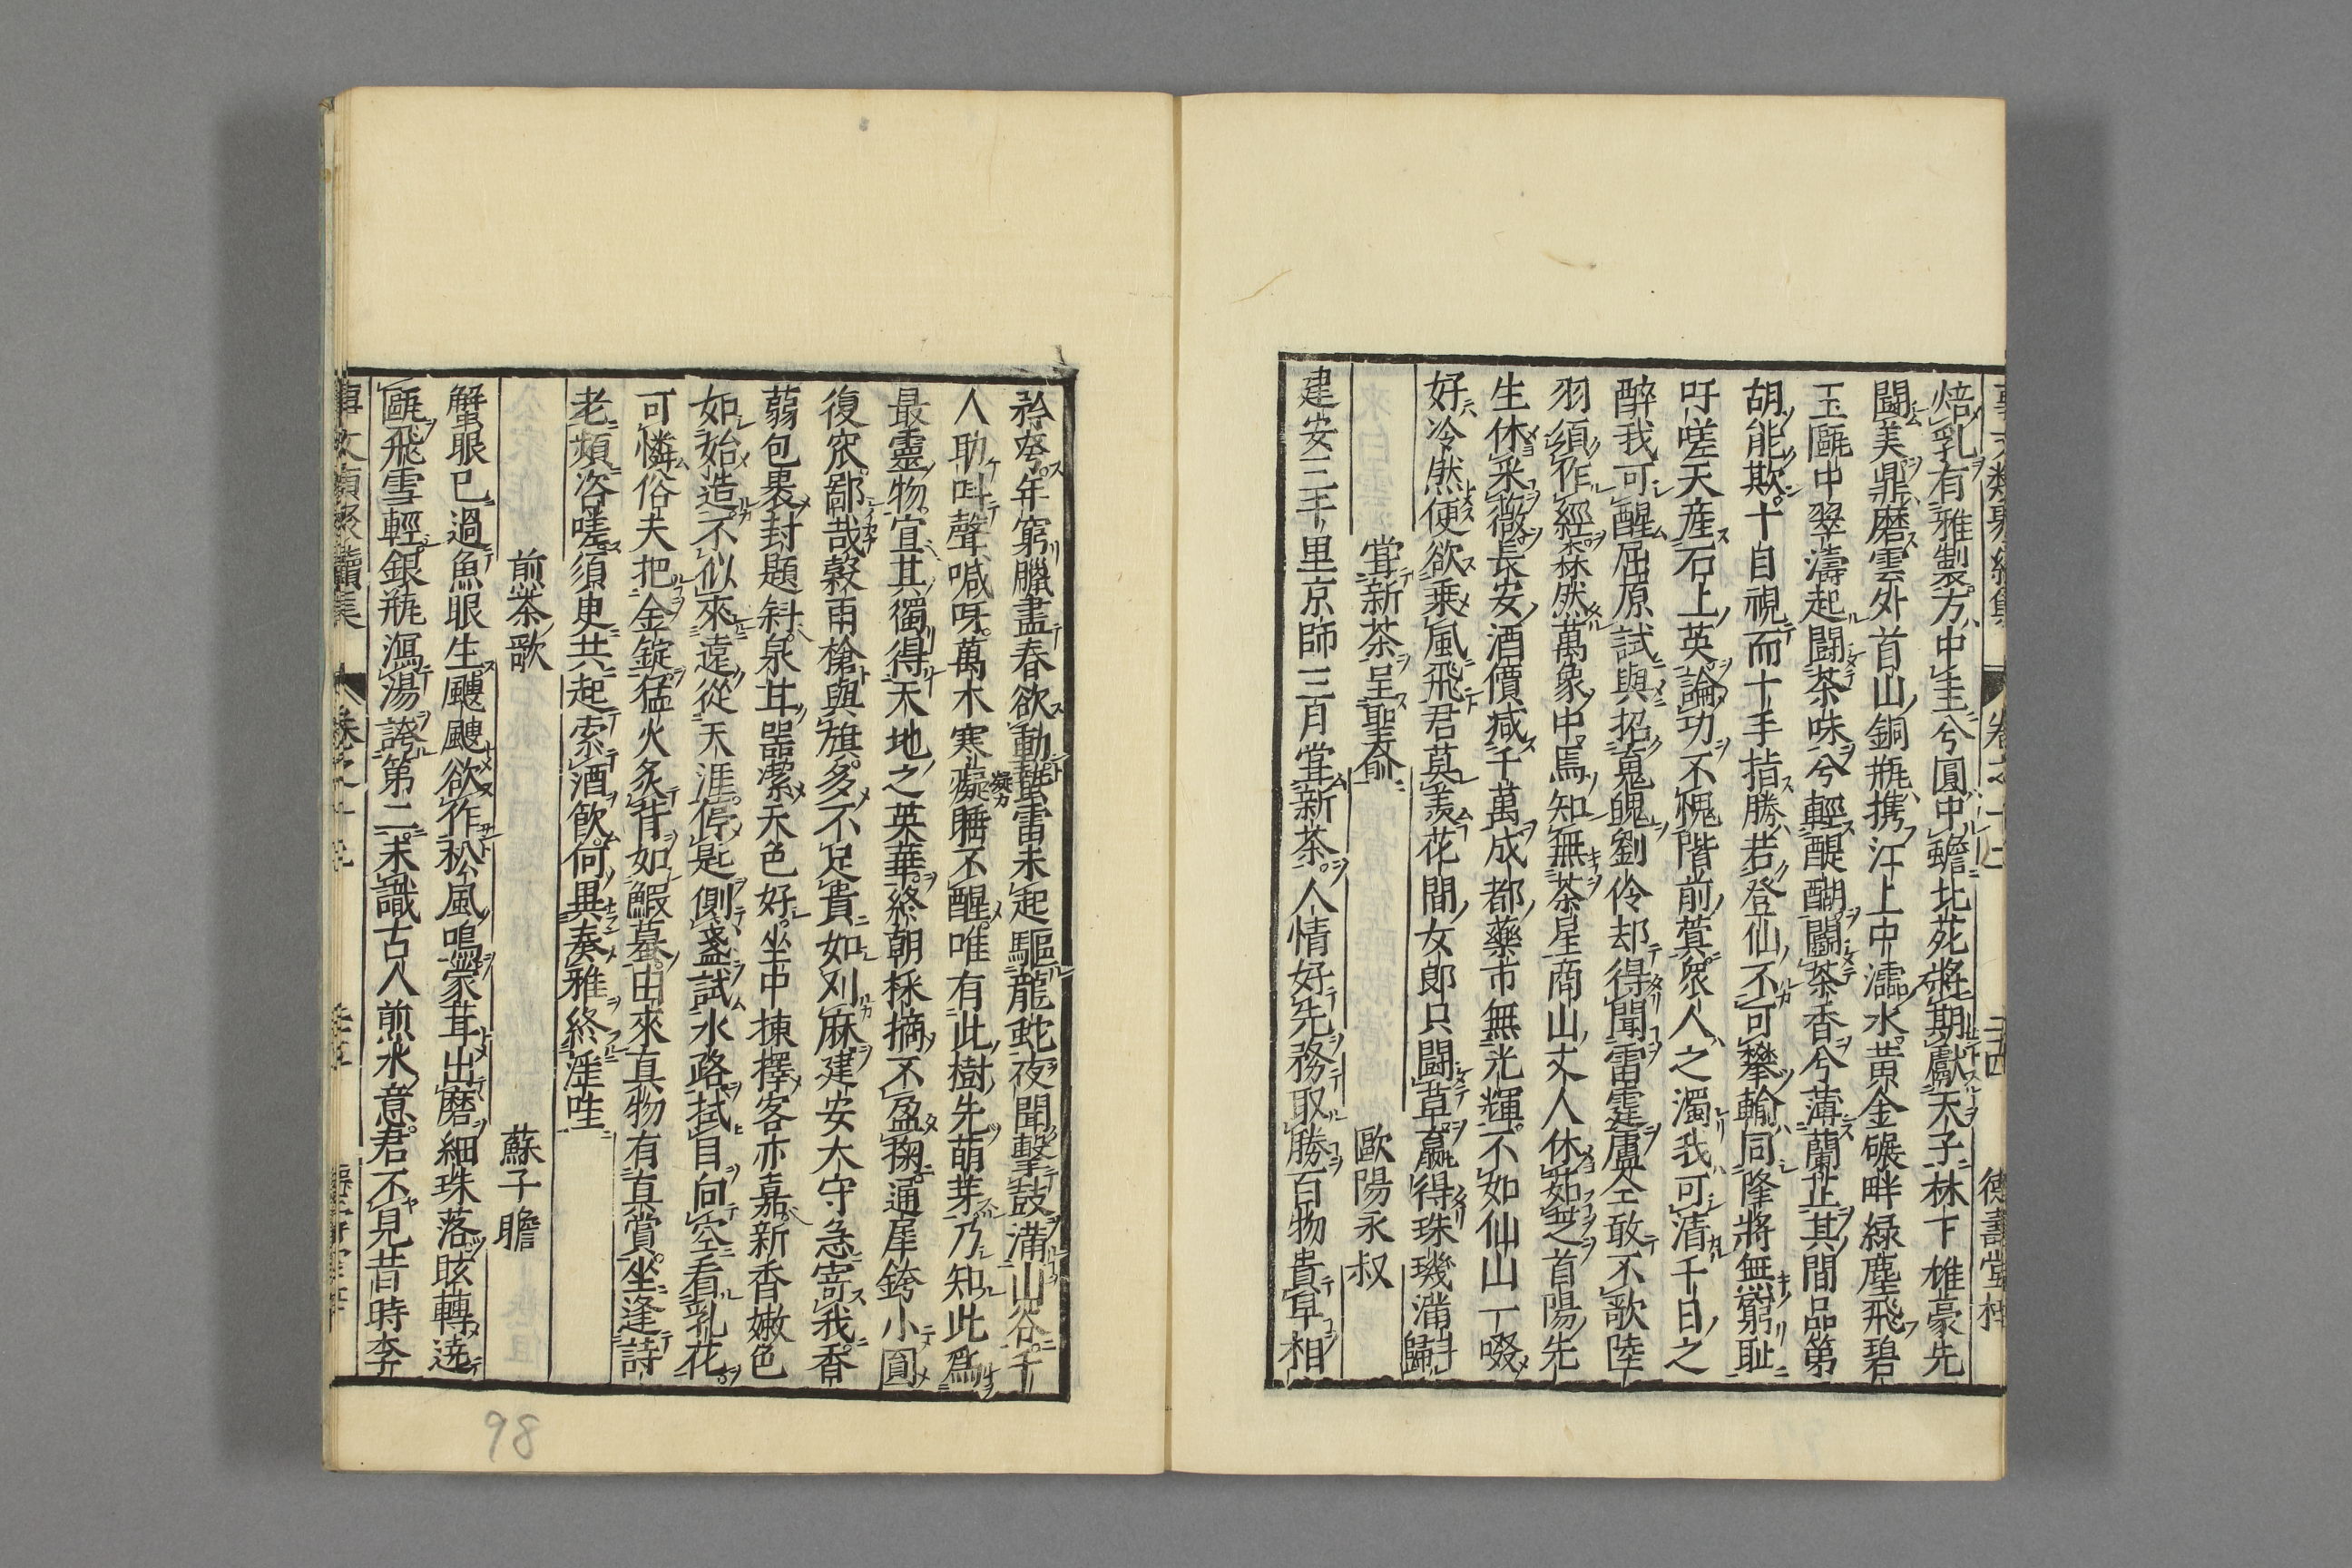 焙乳有雅製方中圭兮圓中蟾北苑將期獻天子林下雄豪先
闘美鼎磨雲外首山銅瓶携江上中濡水黄金碾畔緑塵飛碧
玉甌中翠濤起闘茶味兮輕醍醐闘茶香兮薄蘭芷其間品第
胡能欺十自視而十手指勝若登仙不可攀輸同降將無窮耻
吁嗟天産石上英論功不愧階前蓂衆人之濁我可清千日之
醉我可醒屈原試與招䰟魄劉伶却得聞雷霆盧仝敢不歌陸
羽須作經森然萬象中焉知無茶星商山丈人休茹芝首陽先
生休采薇長安酒價减千萬成都藥市無光輝不如仙山一啜
好冷然便欲乗風飛君莫羨花間女郎只闘草贏得珠璣滿歸
甞新茶呈聖俞　歐陽永叔
建安三千里京師三月甞新茶人情好先務取勝百物貴早相
矜夸年窮臘盡春欲動蟄雷未起驅龍蛇夜聞擊鼓滿山谷千
人助叫聲喊呀萬木寒癡睡不醒唯有此樹先萌芽乃知此爲
最靈物宜其獨得天地之英華終朝採摘不盈掬通犀銙小圓
復窊鄙哉穀雨槍與旗多不足貴如刈麻建安太守急寄我香
蒻包裹封題斜泉甘器潔天色好坐中揀擇客亦嘉新香嫩色
如始造不似來遠從天涯停匙側盞試水路拭目向空看乳花
可憐俗夫把金錠猛火炙背如鰕蟇由來真物有真賞坐逢詩
老頻咨嗟須臾共起索酒飲何異奏雅終淫哇
煎茶歌　蘇子瞻
蟹眼已過魚眼生颼颼欲作松風鳴蒙茸出磨細珠落眩轉遶
甌飛雪輕銀瓶瀉湯誇第二未識古人煎水意君不見昔時李
98